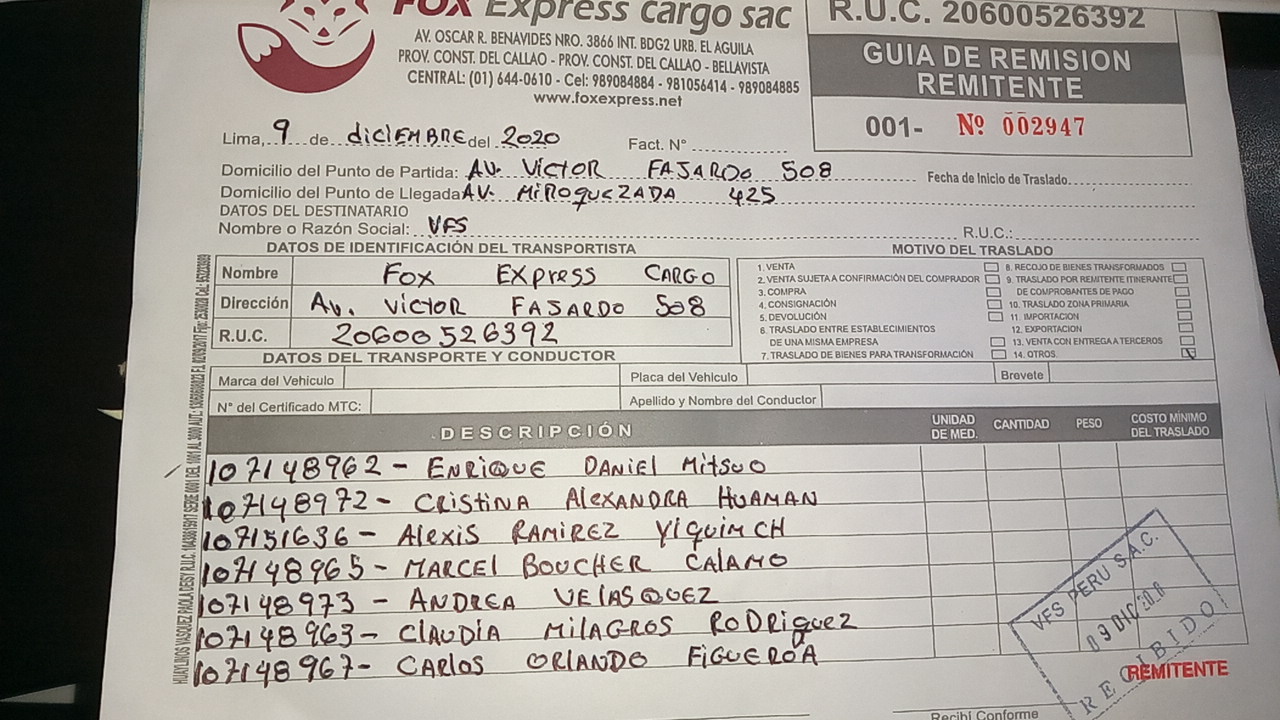 FOX Express cargo sac
R.U.C. 20600526392
AV. OSCAR R. BENAVIDES NRO. 3866 INT. BDG2 URB. EL AGUILA
PROV. CONST. DEL CALLAO - PROV. CONST. DEL CALLAO - BELLAVISTA
CENTRAL: (01) 644-0610 - Cel: 989084884 - 981056414 - 989084885
www.foxexpress.net
GUIA DE REMISION
REMITENTE
001- Nº 002947
Lima, 9 de diciEMBRE del 2020 Fact. N°
Domicilio del Punto de Partida: AV. VICTOR FAJARDO 508 Fecha de Inicio de Traslado
Domicilio del Punto de Llegada AV. MiROQUEZADA 425
DATOS DEL DESTINATARIO
Nombre o Razón Social: VFS R.U.C.:
DATOS DE IDENTIFICACIÓN DEL TRANSPORTISTA
Nombre FOX EXpress CARGO
Dirección Av. VICTOR FAJARDO 508
R.U.C. 20600526392
MOTIVO DEL TRASLADO
1. VENTA
2. VENTA SUJETA A CONFIRMACIÓN DEL COMPRADOR
3. COMPRA
4. CONSIGNACIÓN
5. DEVOLUCIÓN
6. TRASLADO ENTRE ESTABLECIMIENTOS
DE UNA MISMA EMPRESA
7. TRASLADO DE BIENES PARA TRANSFORMACIÓN
8. RECOJO DE BIENES TRANSFORMADOS
9. TRASLADO POR REMITENTE ITINERANTE
DE COMPROBANTES DE PAGO
10. TRASLADO ZONA PRIMARIA
11. IMPORTACION
12. EXPORTACION
13. VENTA CON ENTREGA A TERCEROS
14. OTROS
DATOS DEL TRANSPORTE Y CONDUCTOR
Marca del Vehículo Placa del Vehículo Brevete
N° del Certificado MTC: Apellido y Nombre del Conductor
DESCRIPCIÓN UNIDAD DE MED. CANTIDAD PESO COSTO MÍNIMO DEL TRASLADO
107148962 - ENRIQUE DANIEL MITSUO
107148972 - CRISTINA ALEXANDRA HUAMAN
107151636 - Alexis RAMIREZ YIQUIMCH
107148965 - MARCEL BOUCHER CALAMO
107148973 - ANDREA VELASQUEZ
107148963 - CLAUDIA MILAGROS RODRIGUEZ
107148967 - CARLOS ORLANDO FIGUEROA
VFS PERU S.A.C.
09 DIC 2020
RECIBIDO
REMITENTE
Recibí Conforme